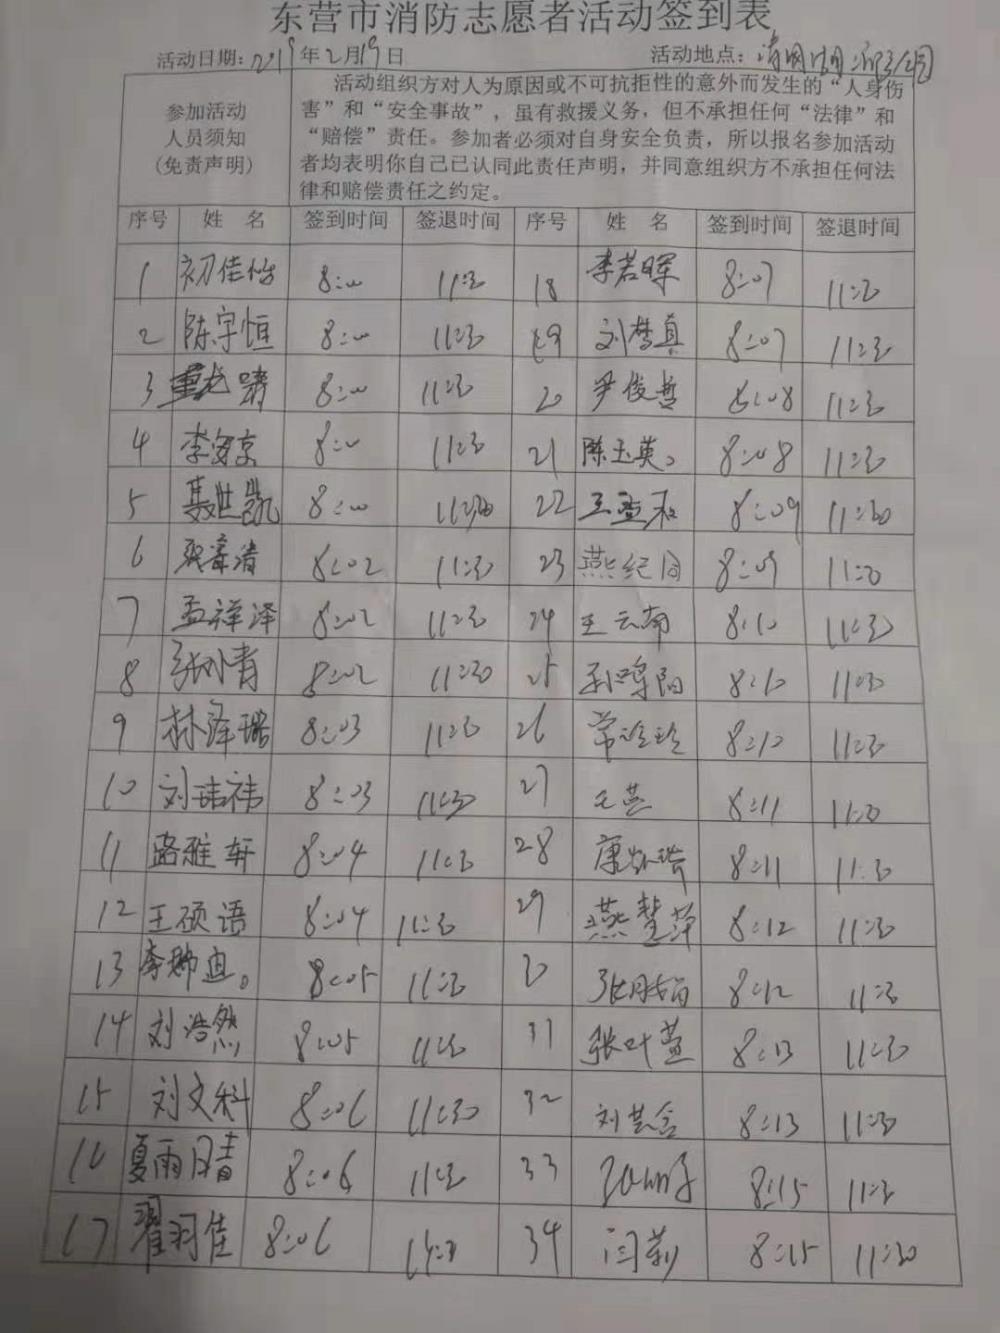 东营市消防志愿者活动签到表
活动日期：2019年2月19日 活动地点：清明湖
参加活动
人员须知
(免责声明)
活动组织方对人为原因或不可抗拒性的意外而发生的“人身伤
害”和“安全事故”，虽有救援义务，但不承担任何“法律”和
“赔偿”责任。参加者必须对自身安全负责，所以报名参加活动
者均表明你自己已认同此责任声明，并同意组织方不承担任何法
律和赔偿责任之约定。
序号 姓 名 签到时间 签退时间 序号 姓 名 签到时间 签退时间
1 初佳怡 8:00 11:30 18 李若晖 8:07 11:30
2 陈宇恒 8:00 11:30 19 刘梦真 8:07 11:30
3 8:00 11:30 20 尹俊哲 8:08 11:30
4 李安京 8:00 11:30 21 陈玉英。 8:08 11:30
5 聂世凯 8:00 11:30 22 8:09 11:30
6 8:02 11:30 23 燕纪同 8:09 11:30
7 孟祥泽 8:02 11:30 24 王云南 8:10 11:30
8 8:02 11:30 25 孙鸣阳 8:10 11:30
9 林泽璐 8:03 11:30 26 常玲玲 8:10 11:30
10 刘玮祎 8:03 11:30 27 王芸 8:11 11:30
11 路雅轩 8:04 11:30 28 8:11 11:30
12 王硕语 8:04 11:30 29 燕楚萍 8:12 11:30
13 8:05 11:30 30 8:12 11:30
14 刘浩然 8:05 11:30 31 张叶萱 8:13 11:30
15 刘文科 8:06 11:30 32 刘芸含 8:13 11:30
16 夏雨晴 8:06 11:30 33 8:15 11:30
17 翟羽佳 8:06 11:30 34 闫莉 8:15 11:30